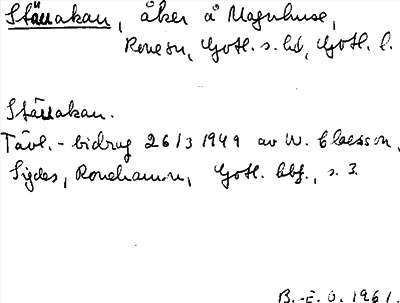 Ställakan, åker å Magnhuse,
Rone sn, Gotl. s. hd, Gotl. l.
Ställakan.
Tävl.-bidrag 26/3 1949 av W. Claesson,
Sigdes, Ronehamn, Gotl. bbf., s. 3.
B.-E. O. 1961.